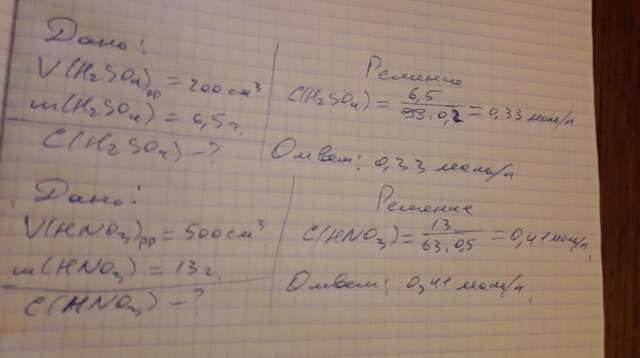 Дано:
V(H₂SO₄)рр = 200 см³
m(H₂SO₄) = 6,5 г.
C(H₂SO₄) - ?
Решение
C(H₂SO₄) = 6,5 / 98·0,2 = 0,33 моль/л
Ответ: 0,33 моль/л
Дано:
V(HNO₃)рр = 500 см³
m(HNO₃) = 13 г.
C(HNO₃) - ?
Решение
C(HNO₃) = 13 / 63·0,5 = 0,41 моль/л
Ответ: 0,41 моль/л.